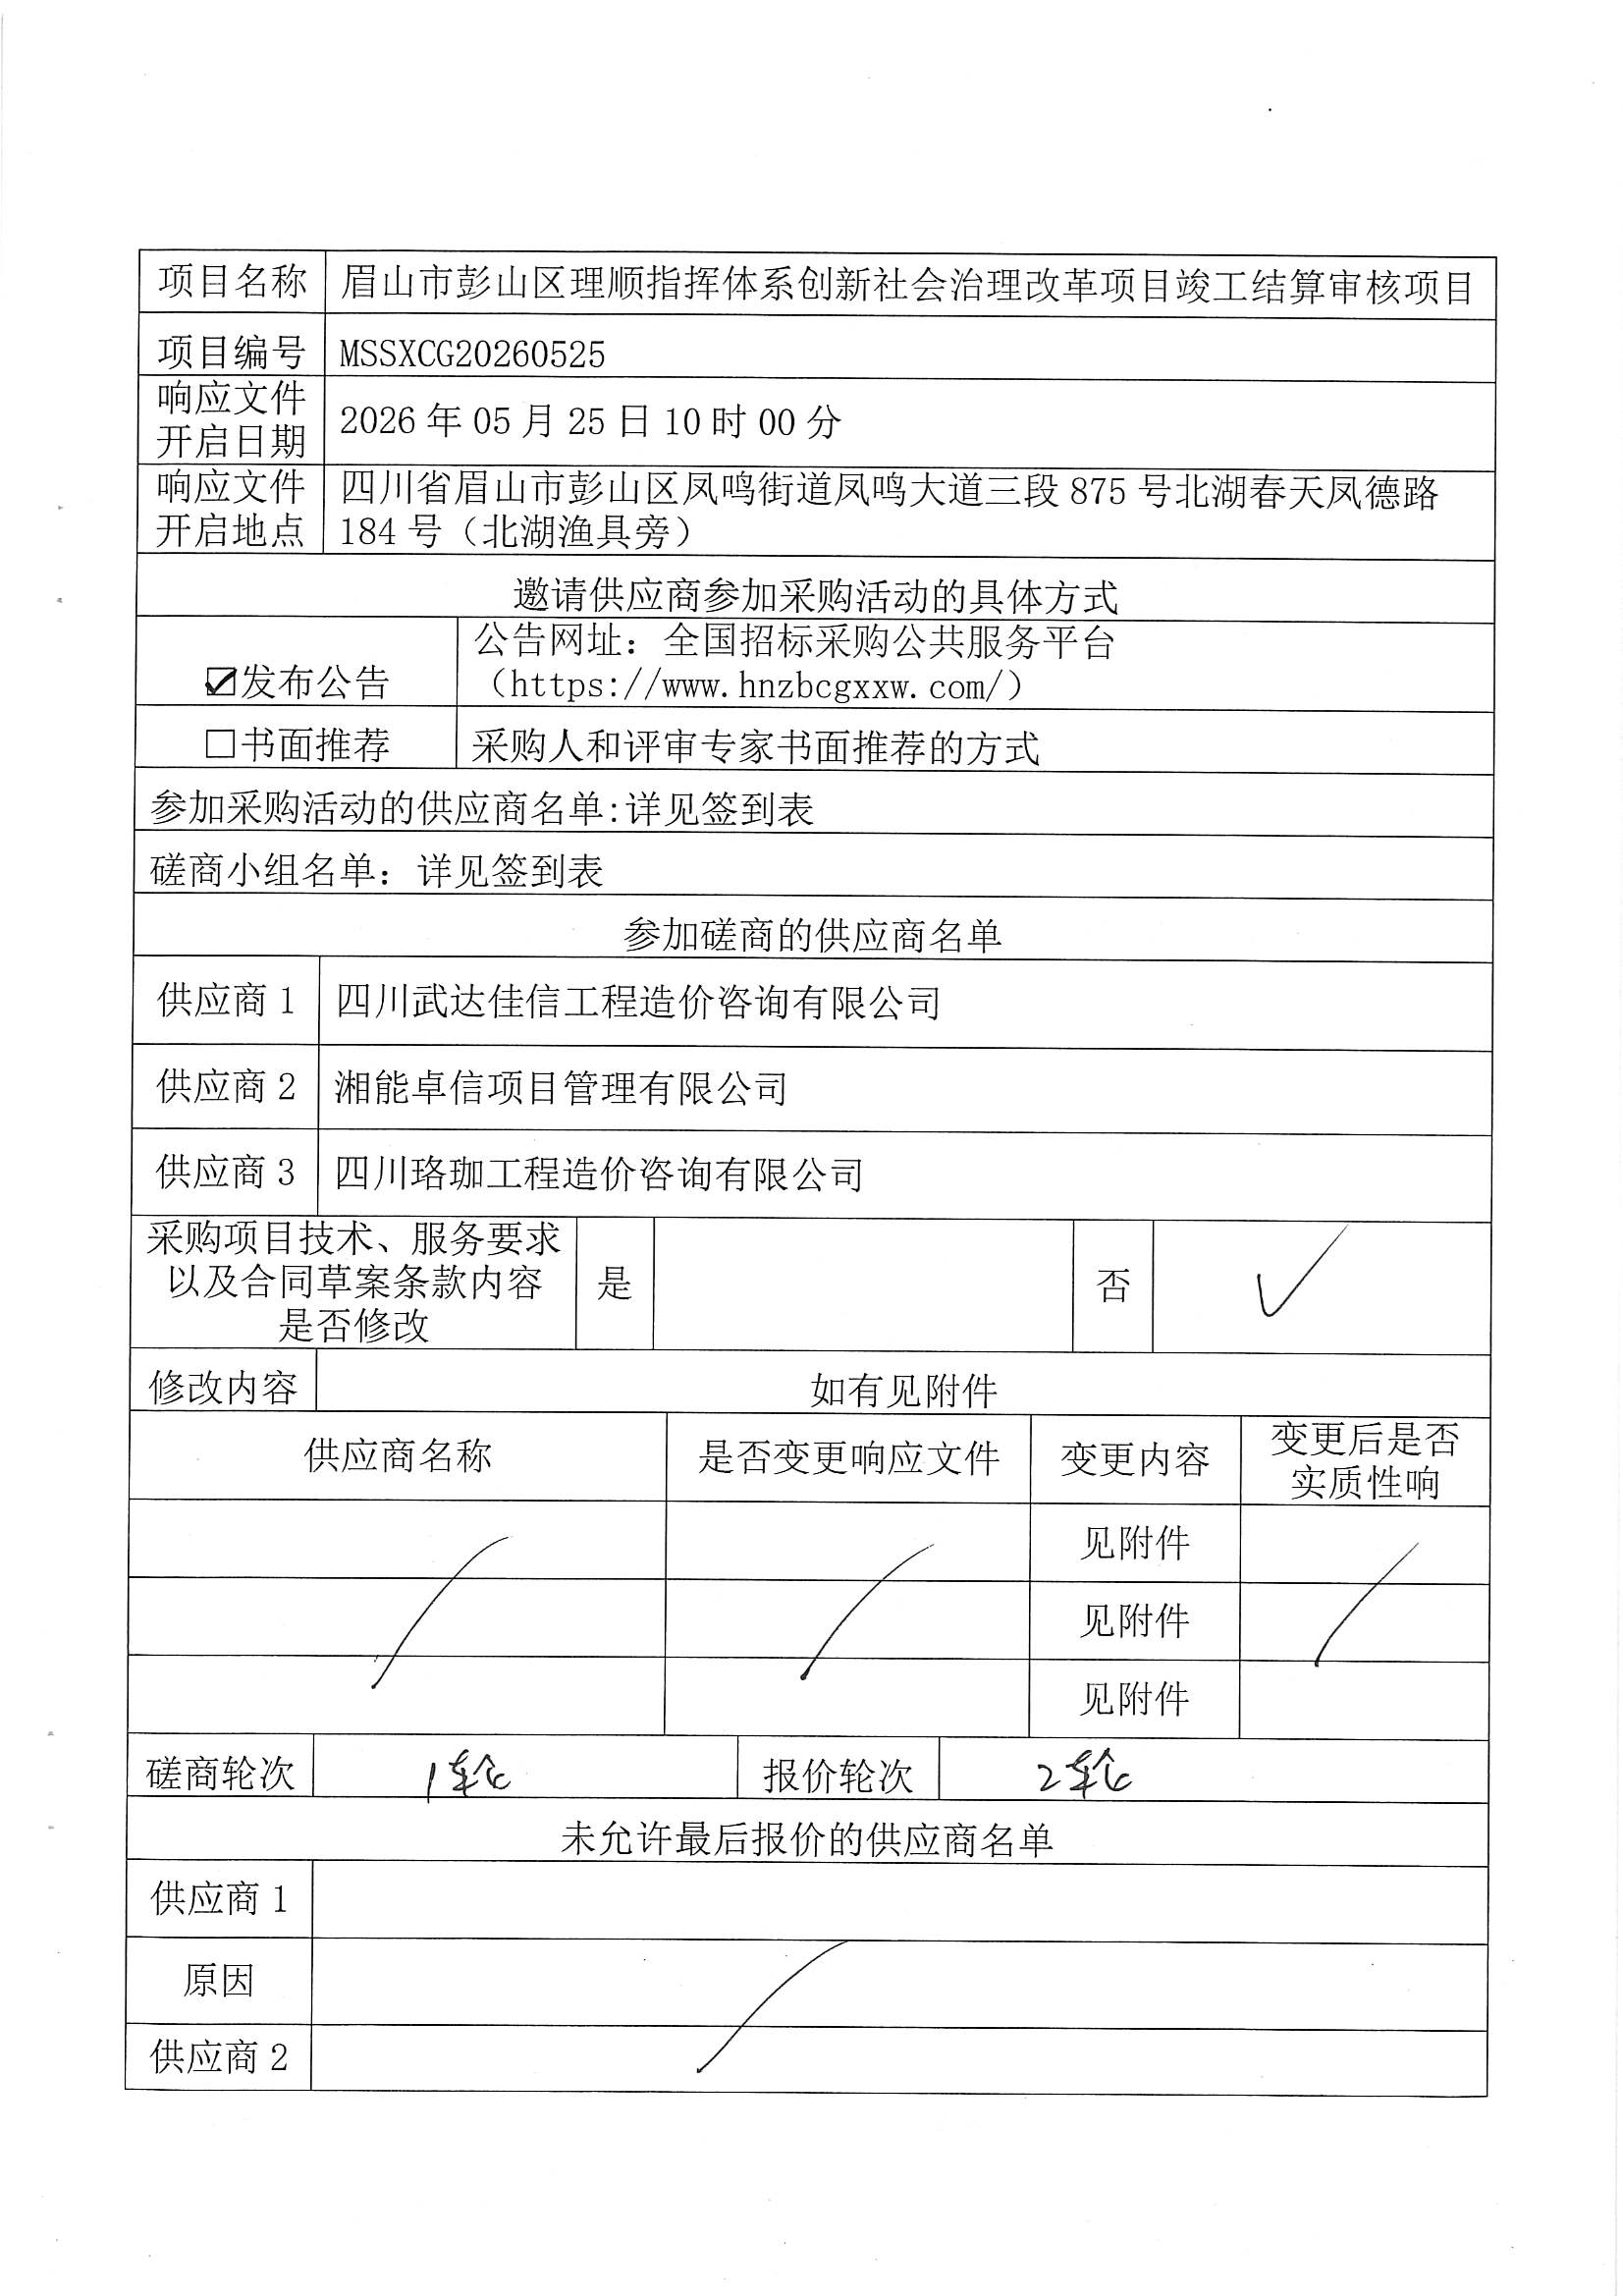 项目名称 眉山市彭山区理顺指挥体系创新社会治理改革项目竣工结算审核项目
项目编号 MSSXCG20260525
响应文件
开启日期 2026 年 05 月 25 日 10 时 00 分
响应文件 四川省眉山市彭山区凤鸣街道凤鸣大道三段 875 号北湖春天凤德路
开启地点 184 号（北湖渔具旁）
邀请供应商参加采购活动的具体方式
☑发布公告 公告网址：全国招标采购公共服务平台
（https://www.hnzbcgxxw.com/）
□书面推荐 采购人和评审专家书面推荐的方式
参加采购活动的供应商名单:详见签到表
磋商小组名单：详见签到表
参加磋商的供应商名单
供应商 1 四川武达佳信工程造价咨询有限公司
供应商 2 湘能卓信项目管理有限公司
供应商 3 四川珞珈工程造价咨询有限公司
采购项目技术、服务要求
以及合同草案条款内容 是 否 ✓
是否修改
修改内容 如有见附件
供应商名称 是否变更响应文件 变更内容 变更后是否
实质性响
见附件
见附件
见附件
磋商轮次 1轮 报价轮次 2轮
未允许最后报价的供应商名单
供应商 1
原因
供应商 2